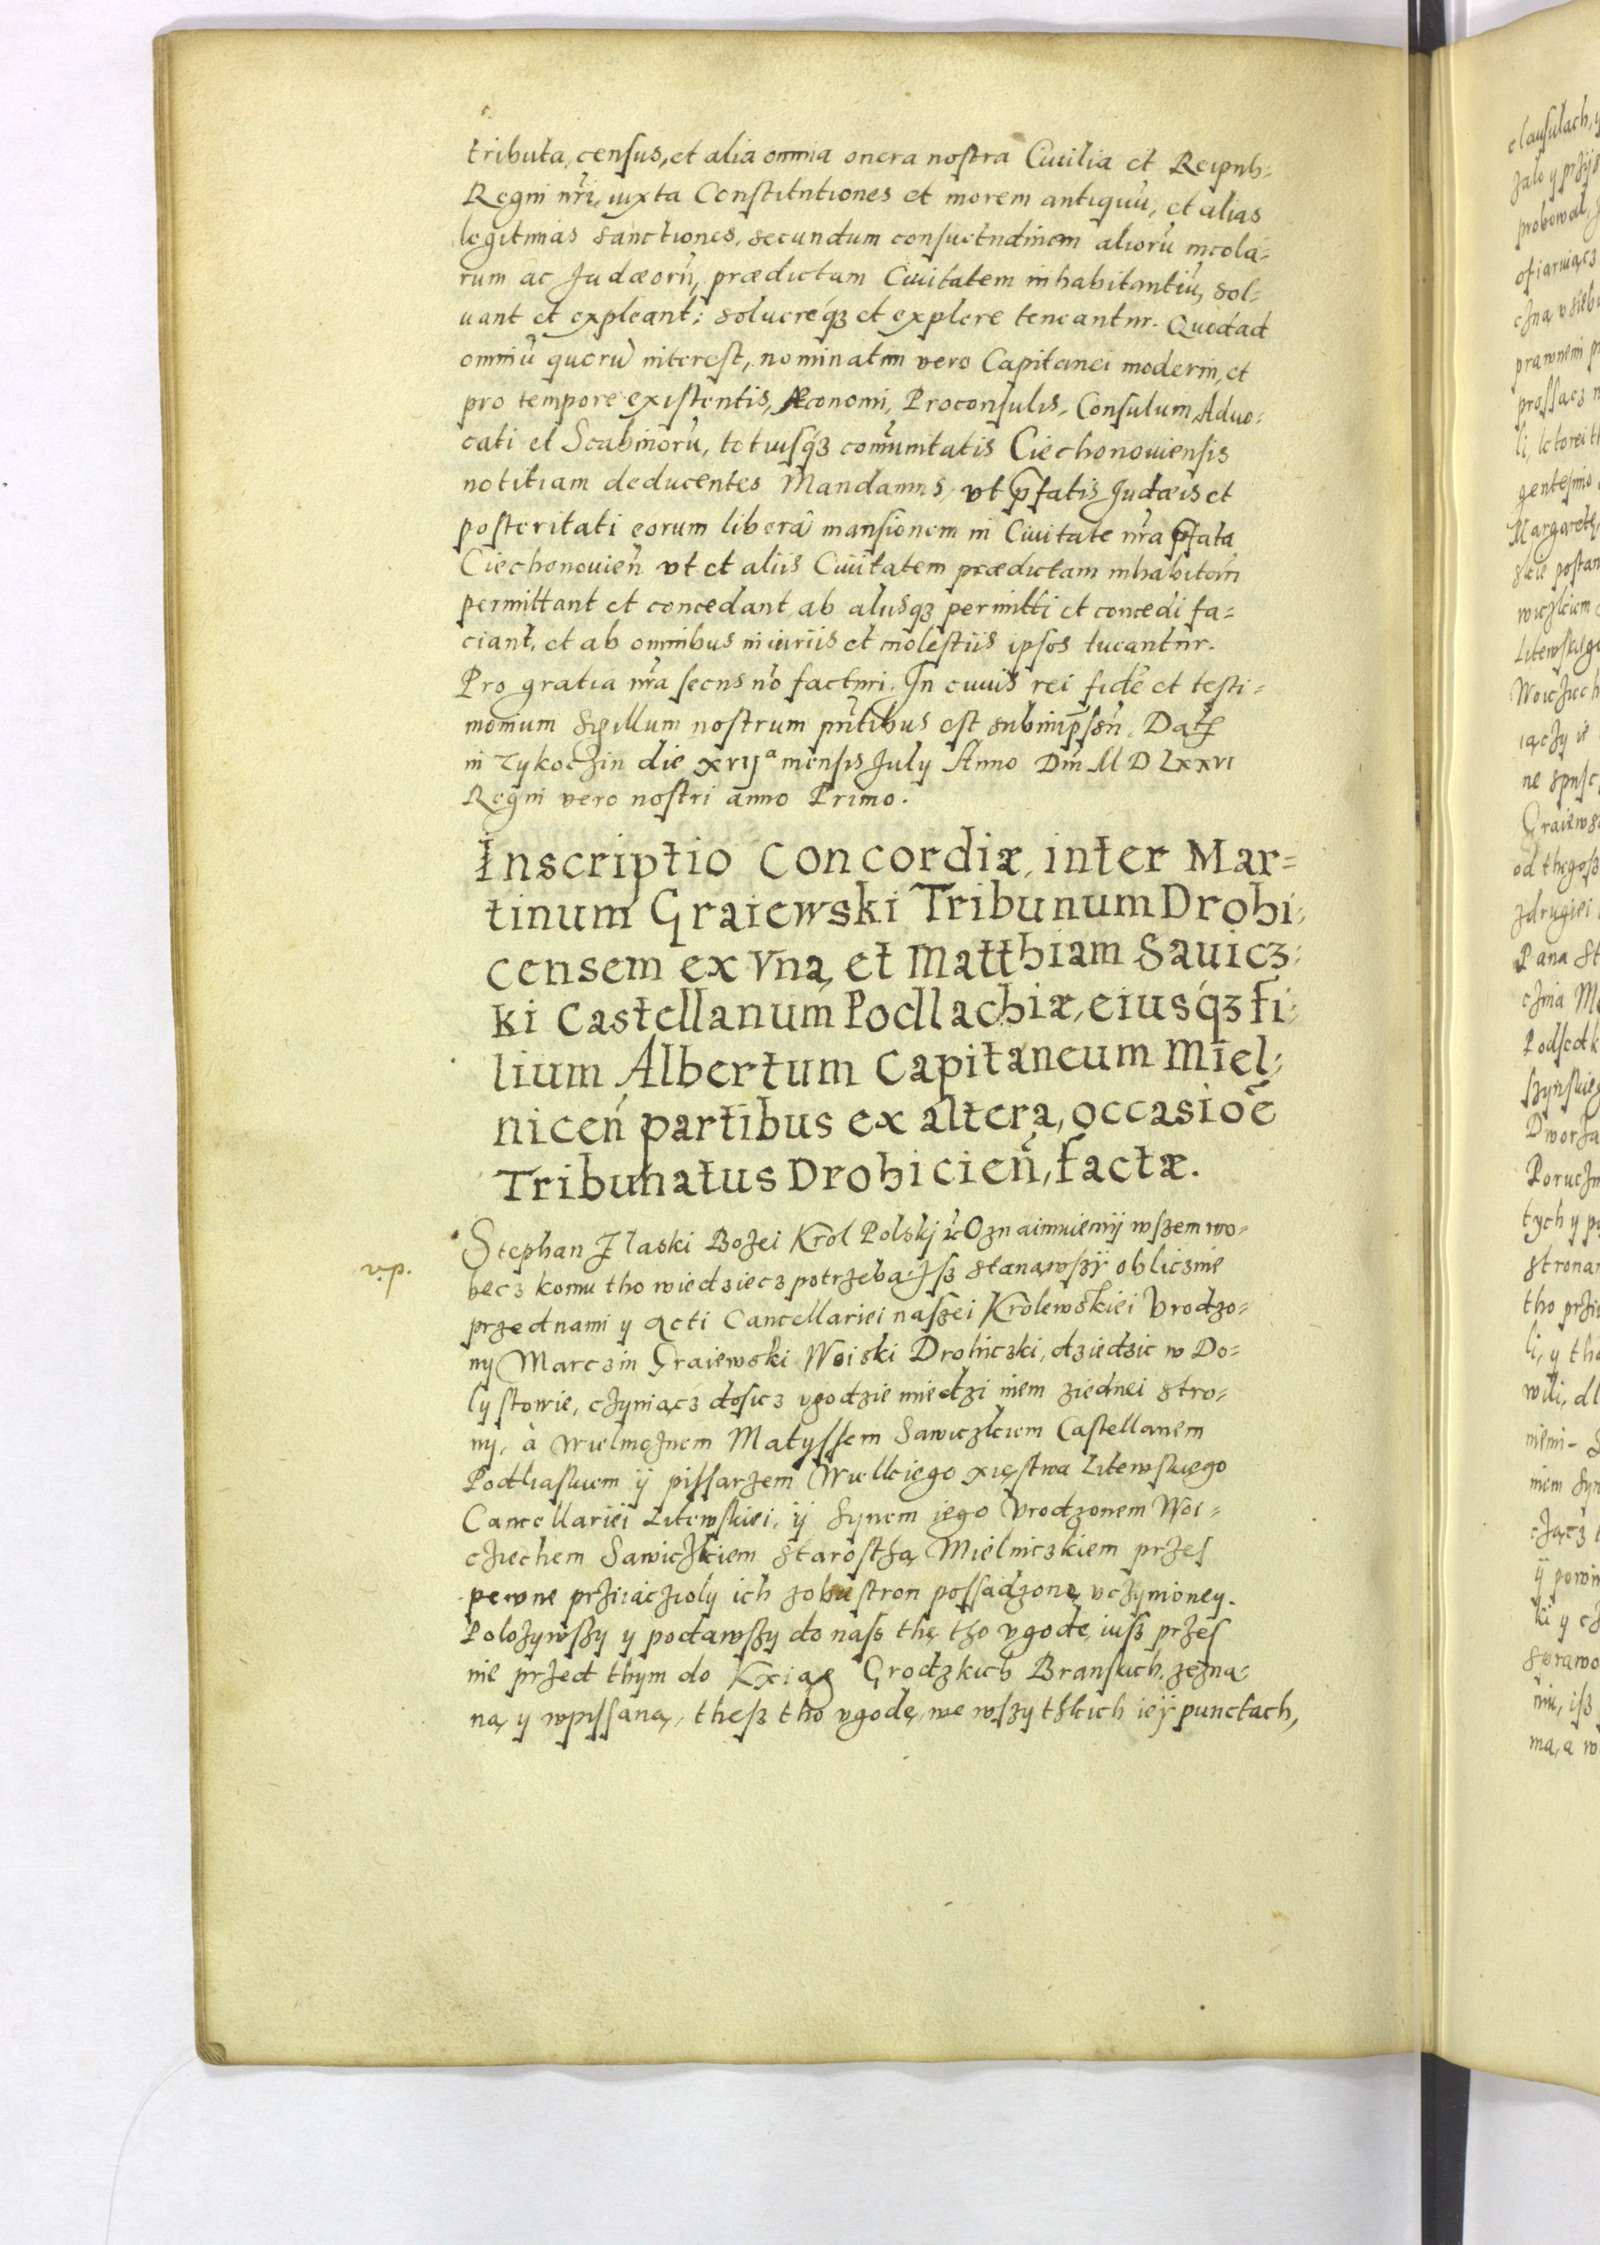 tributa, census, et alia omnia onera nostra Ciuilia et Reipub-
Regni nr̃i, iuxta Constitutiones et morem antiquũ, et alias
legitimas sanctiones, secundum consuetudinem aliorũ incola-
rum ac Judæorũ, prædictam Ciuitatem inhabitantiũ, sol-
uant et expleant: soluereq́ʒ et explere teneantur. Quod ad
omniũ quorũ interest, nominatim vero Capitanei moderni, et
pro tempore existentis, Æconomi, Proconsulis, Consulum, Aduo-
cati et Scabinorũ, totiusq́ʒ com̃unitatis Ciechonouiensis
notitiam deducentes Mandamus, vt p̃fatis Judæis et
posteritati eorum liberã mansionem in Ciuitate nr̃a p̃fata
Ciechonouień vt et aliis Ciuitatem prædictam inhabitoñ
permittant et concedant, ab aliisqʒ permitti et concedi fa-
ciant, et ab omnibus iniuriis et molestiis ipsos tueantur.
Pro gratia nr̃a secus nõ facturi. In cuius rei fidẽ et testi-
monium Sigillum nostrum pñtibus est subimp̃ssũ. Dat̃
in Tykoczin die xvijª mensis July Anno Dñi M D Lxxvi
Regni vero nostri anno Primo.
Inscriptio Concordiæ, inter Mar-
tinum Graiewski Tribunum Drohi-
censem ex Vna, et Matthiam Sauicʒ-
ki Castellanum Podlachiæ, eiusq́ʒ fi-
lium Albertum Capitaneum Miel-
niceń partibus ex altera, occasiõe
Tribunatus Drohicień, factæ.
Stephan Z laski Bozei Krol Polskj &c̃ Oznaimuiemÿ wszem wo-
v.p.
becz komu tho wiedziecz potrzeba: Jsz stanąwszÿ obliczmie
przed nami y Acti Cancellariei naszei Krolewskiei Vrodzo-
ny Marczin Graiewski Woiski Drohiczki, dziedzic w Do-
lystowie, czyniącz dosicz vgodzie miedzi niem ziednei stro-
ny, à Wielmoznem Matyssem Sawiczkiem Castellanem
Podliaskiem ÿ pissarzem Wielkiego xięstwa Litewskiego
Cancellariei Litewskiei, ÿ Synem iego Vrodzonem Woi-
cziechem Sawiczkiem Starosthą Mielniczkiem przes
pewne prziiaczioly ich zobustron possadzone vczynioney.
Polozywszy y podawszy do nass thę tho vgodę, iusz przes
nie przed thym do Kxiąg Grodzkich Branskich, zezna-
ną y wpissaną, thesz tho vgodę, we wszytkich ieÿ punctach,